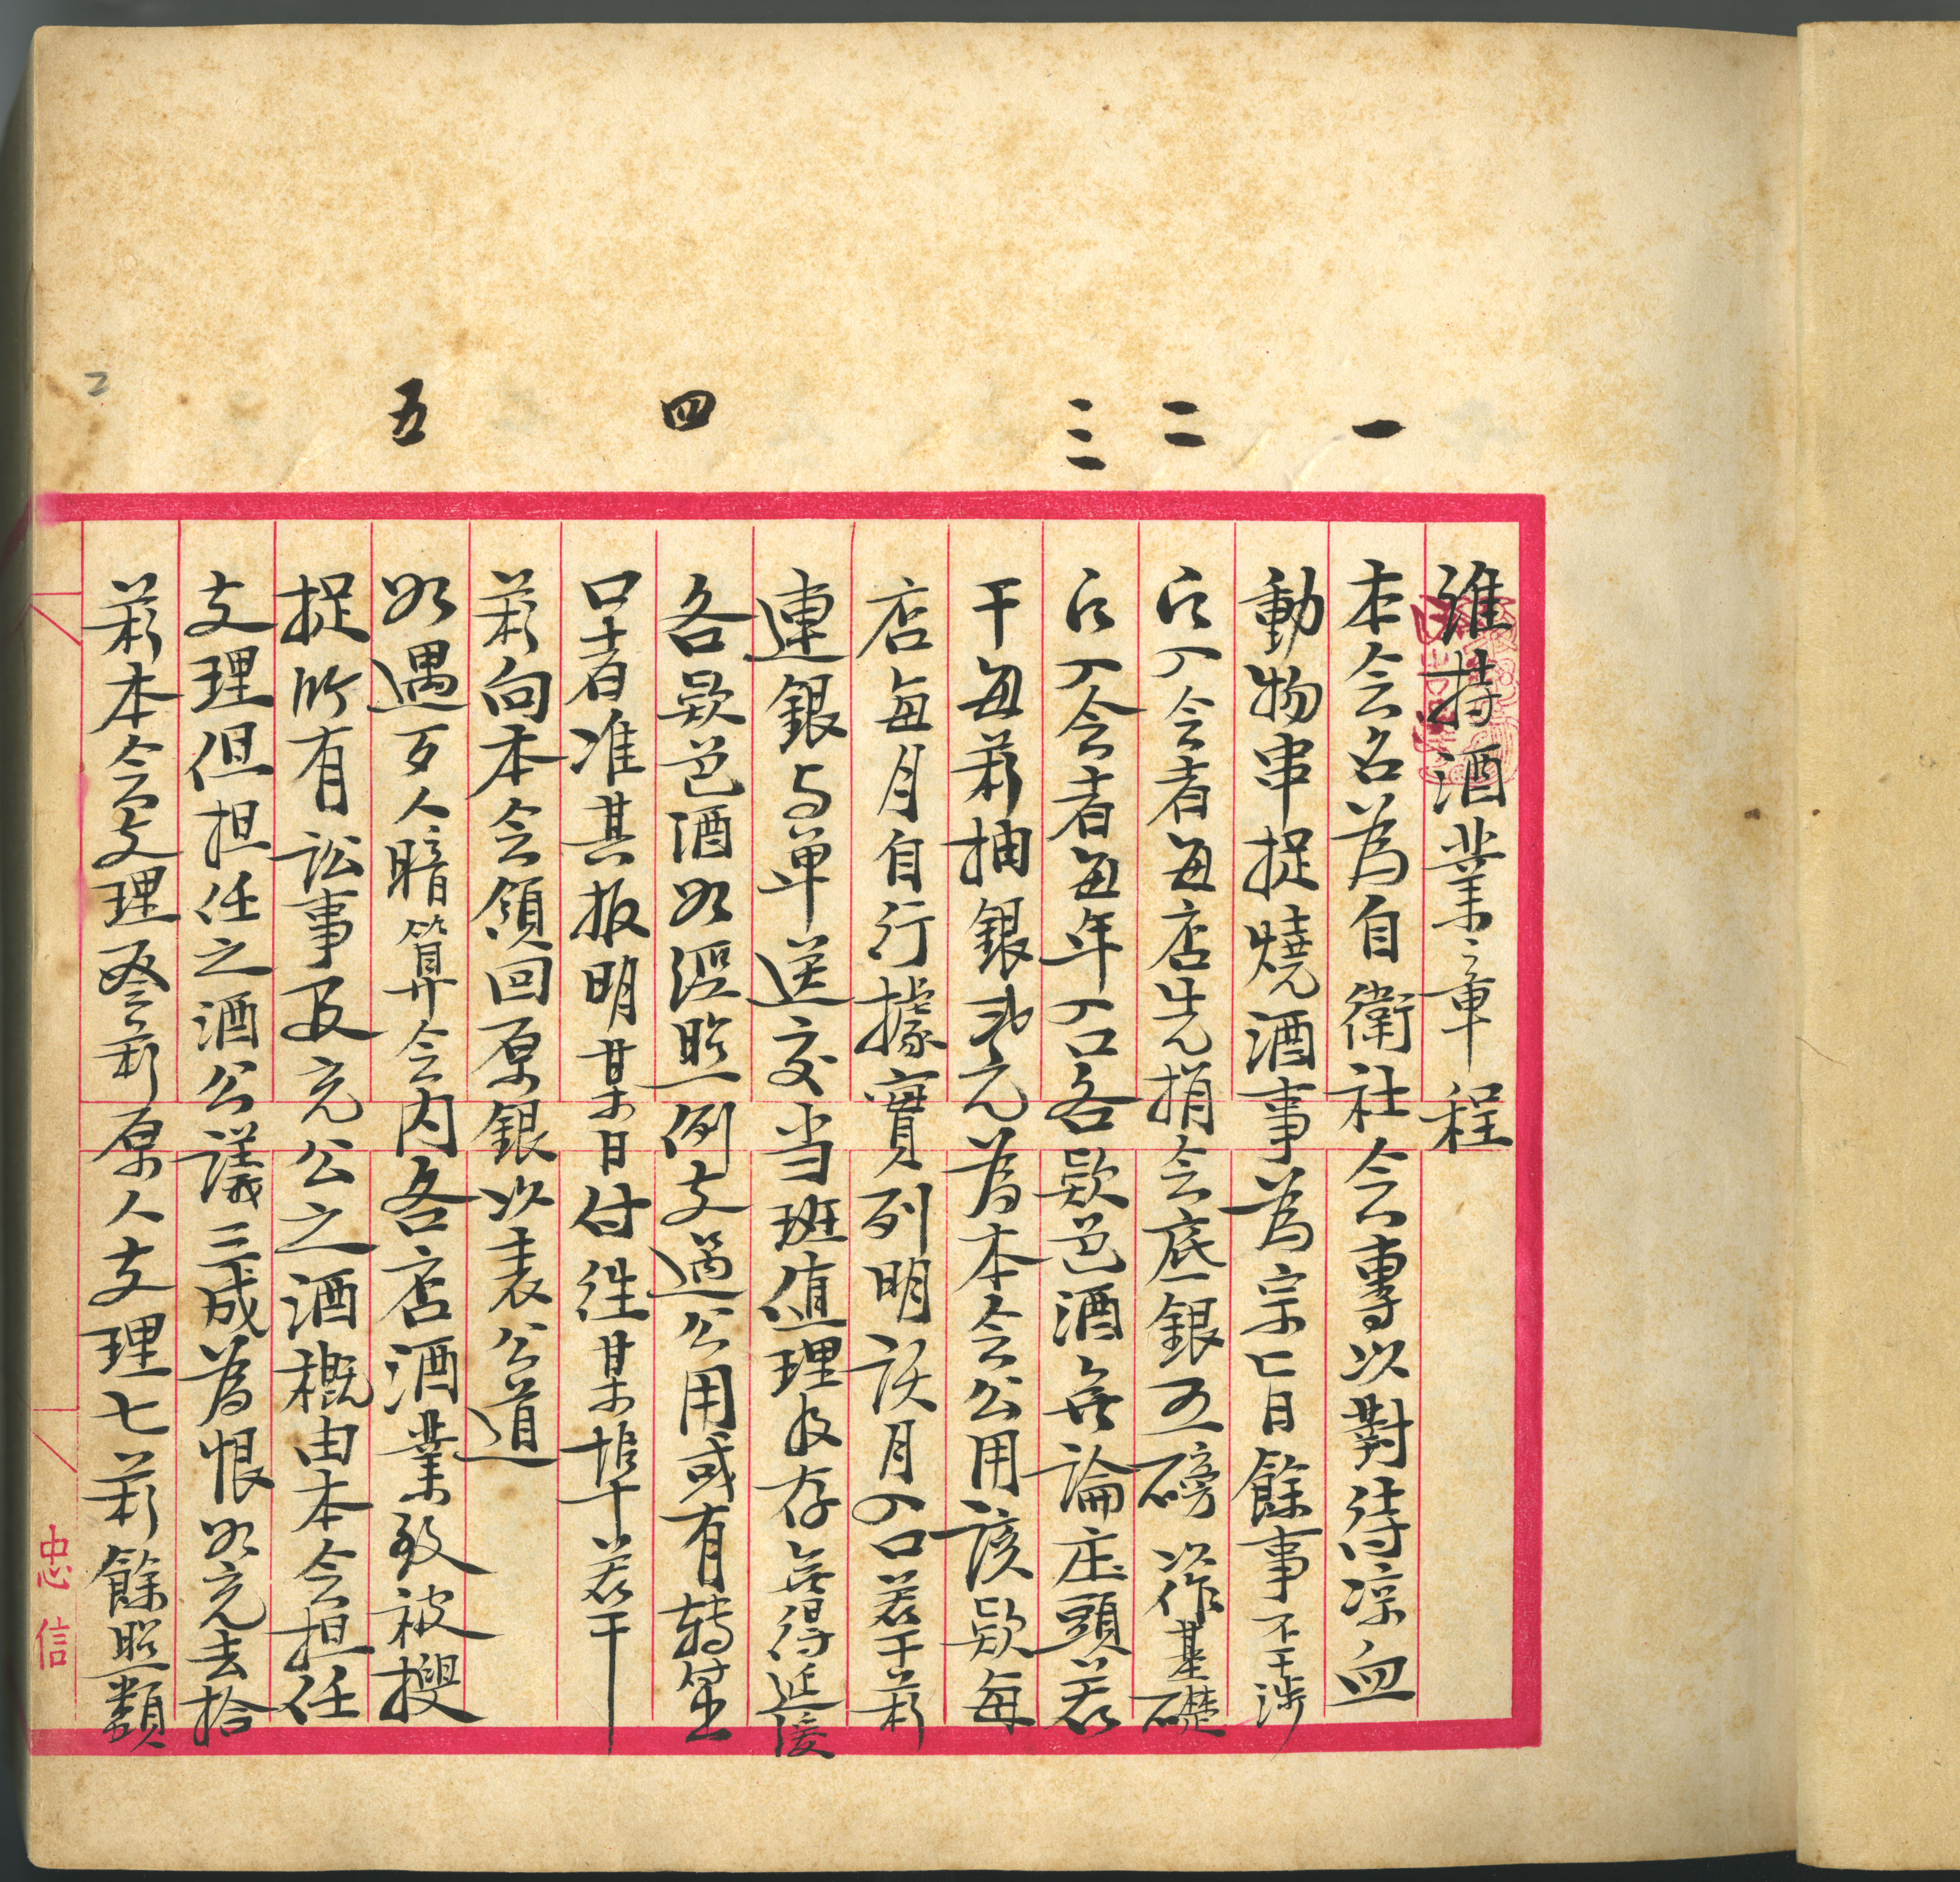 維持酒業章程
一 本会名為自衛社会專以對待凉血
動物串捉燒酒事為宗旨餘事不干涉
二 凡入会者每店先捐会底銀五磅以作基礎
三 凡入会者每年入口各欵色酒無論庄頭若
干每箱抽銀弍元為本会公用該欵每
店每月自行據實列明该月入口若干箱
連銀与单送交当班值理收存無得延緩
四 各欵色酒如經照例支過公用或有转笠
口者准其报明某日付徃某埠若干
箱向本会領回原銀以表公道
五 如遇歹人暗算会内各店酒業致被搜
捉所有訟事及充公之酒概由本会担任
支理但担任之酒公議三成為限如充去拾
箱本会支理叁箱原人支理七箱餘照類
忠信
2